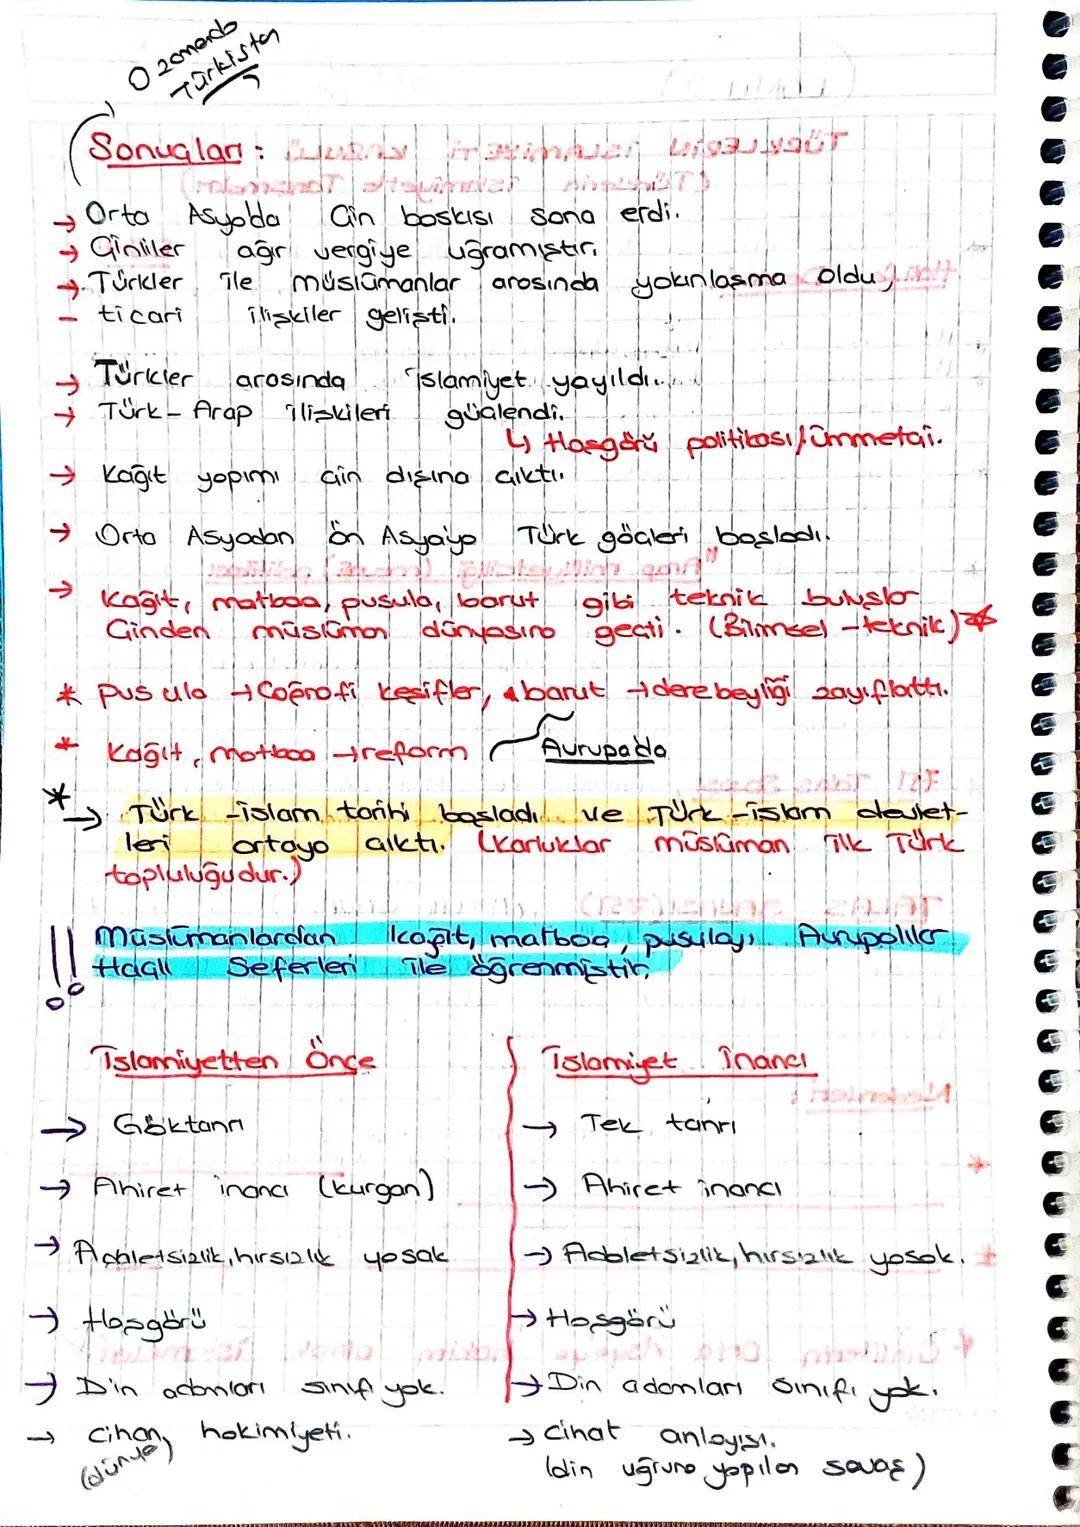 O zamanda
Türkistan
Sonuçları:
→ Orta Asya'da Çin baskısı sona erdi.
→ Çinliler ağır vergiye uğramıştır.
→ Türkler ile müslümanlar arasında yakınlaşma oldu,
- ticari ilişkiler gelişti.
→ Türkler arasında islamiyet yayıldı.
→ Türk-Arap ilişkileri güçlendi.
↳ Hoşgörü politikası/ümmetçi.
→ Kağıt yapımı Çin dışına çıktı.
→ Orta Asyadan ön Asya'ya Türk göçleri başladı.
→ Kağıt, matbaa, pusula, barut gibi teknik buluşlar
Çinden müslüman dünyasına geçti. (Bilimsel-teknik) *
* pusula → Coğrafi keşifler, barut → derebeyliği zayıflattı.
* Kağıt, matbaa → reform Avrupa'da
* → Türk-islam tarihi başladı ve Türk-islam devlet-
leri ortaya çıktı. (Karluklar müslüman ilk Türk
topluluğudur.)
!! Müslümanlardan kağıt, matbaa, pusulayı Avrupalılar
Haçlı Seferleri ile öğrenmiştir.
İslamiyetten Önce
→ Göktanrı
→ Ahiret inancı (kurgan)
→ Adaletsizlik, hırsızlık yasak
→ Hoşgörü
→ Din adamları sınıfı yok.
→ cihan hakimiyeti.
(dünya)
İslamiyet İnancı
→ Tek tanrı
→ Ahiret inancı
→ Adaletsizlik, hırsızlık yasak.
→ Hoşgörü
→ Din adamları sınıfı yok.
→ cihat anlayışı.
(din uğruna yapılan savaş)